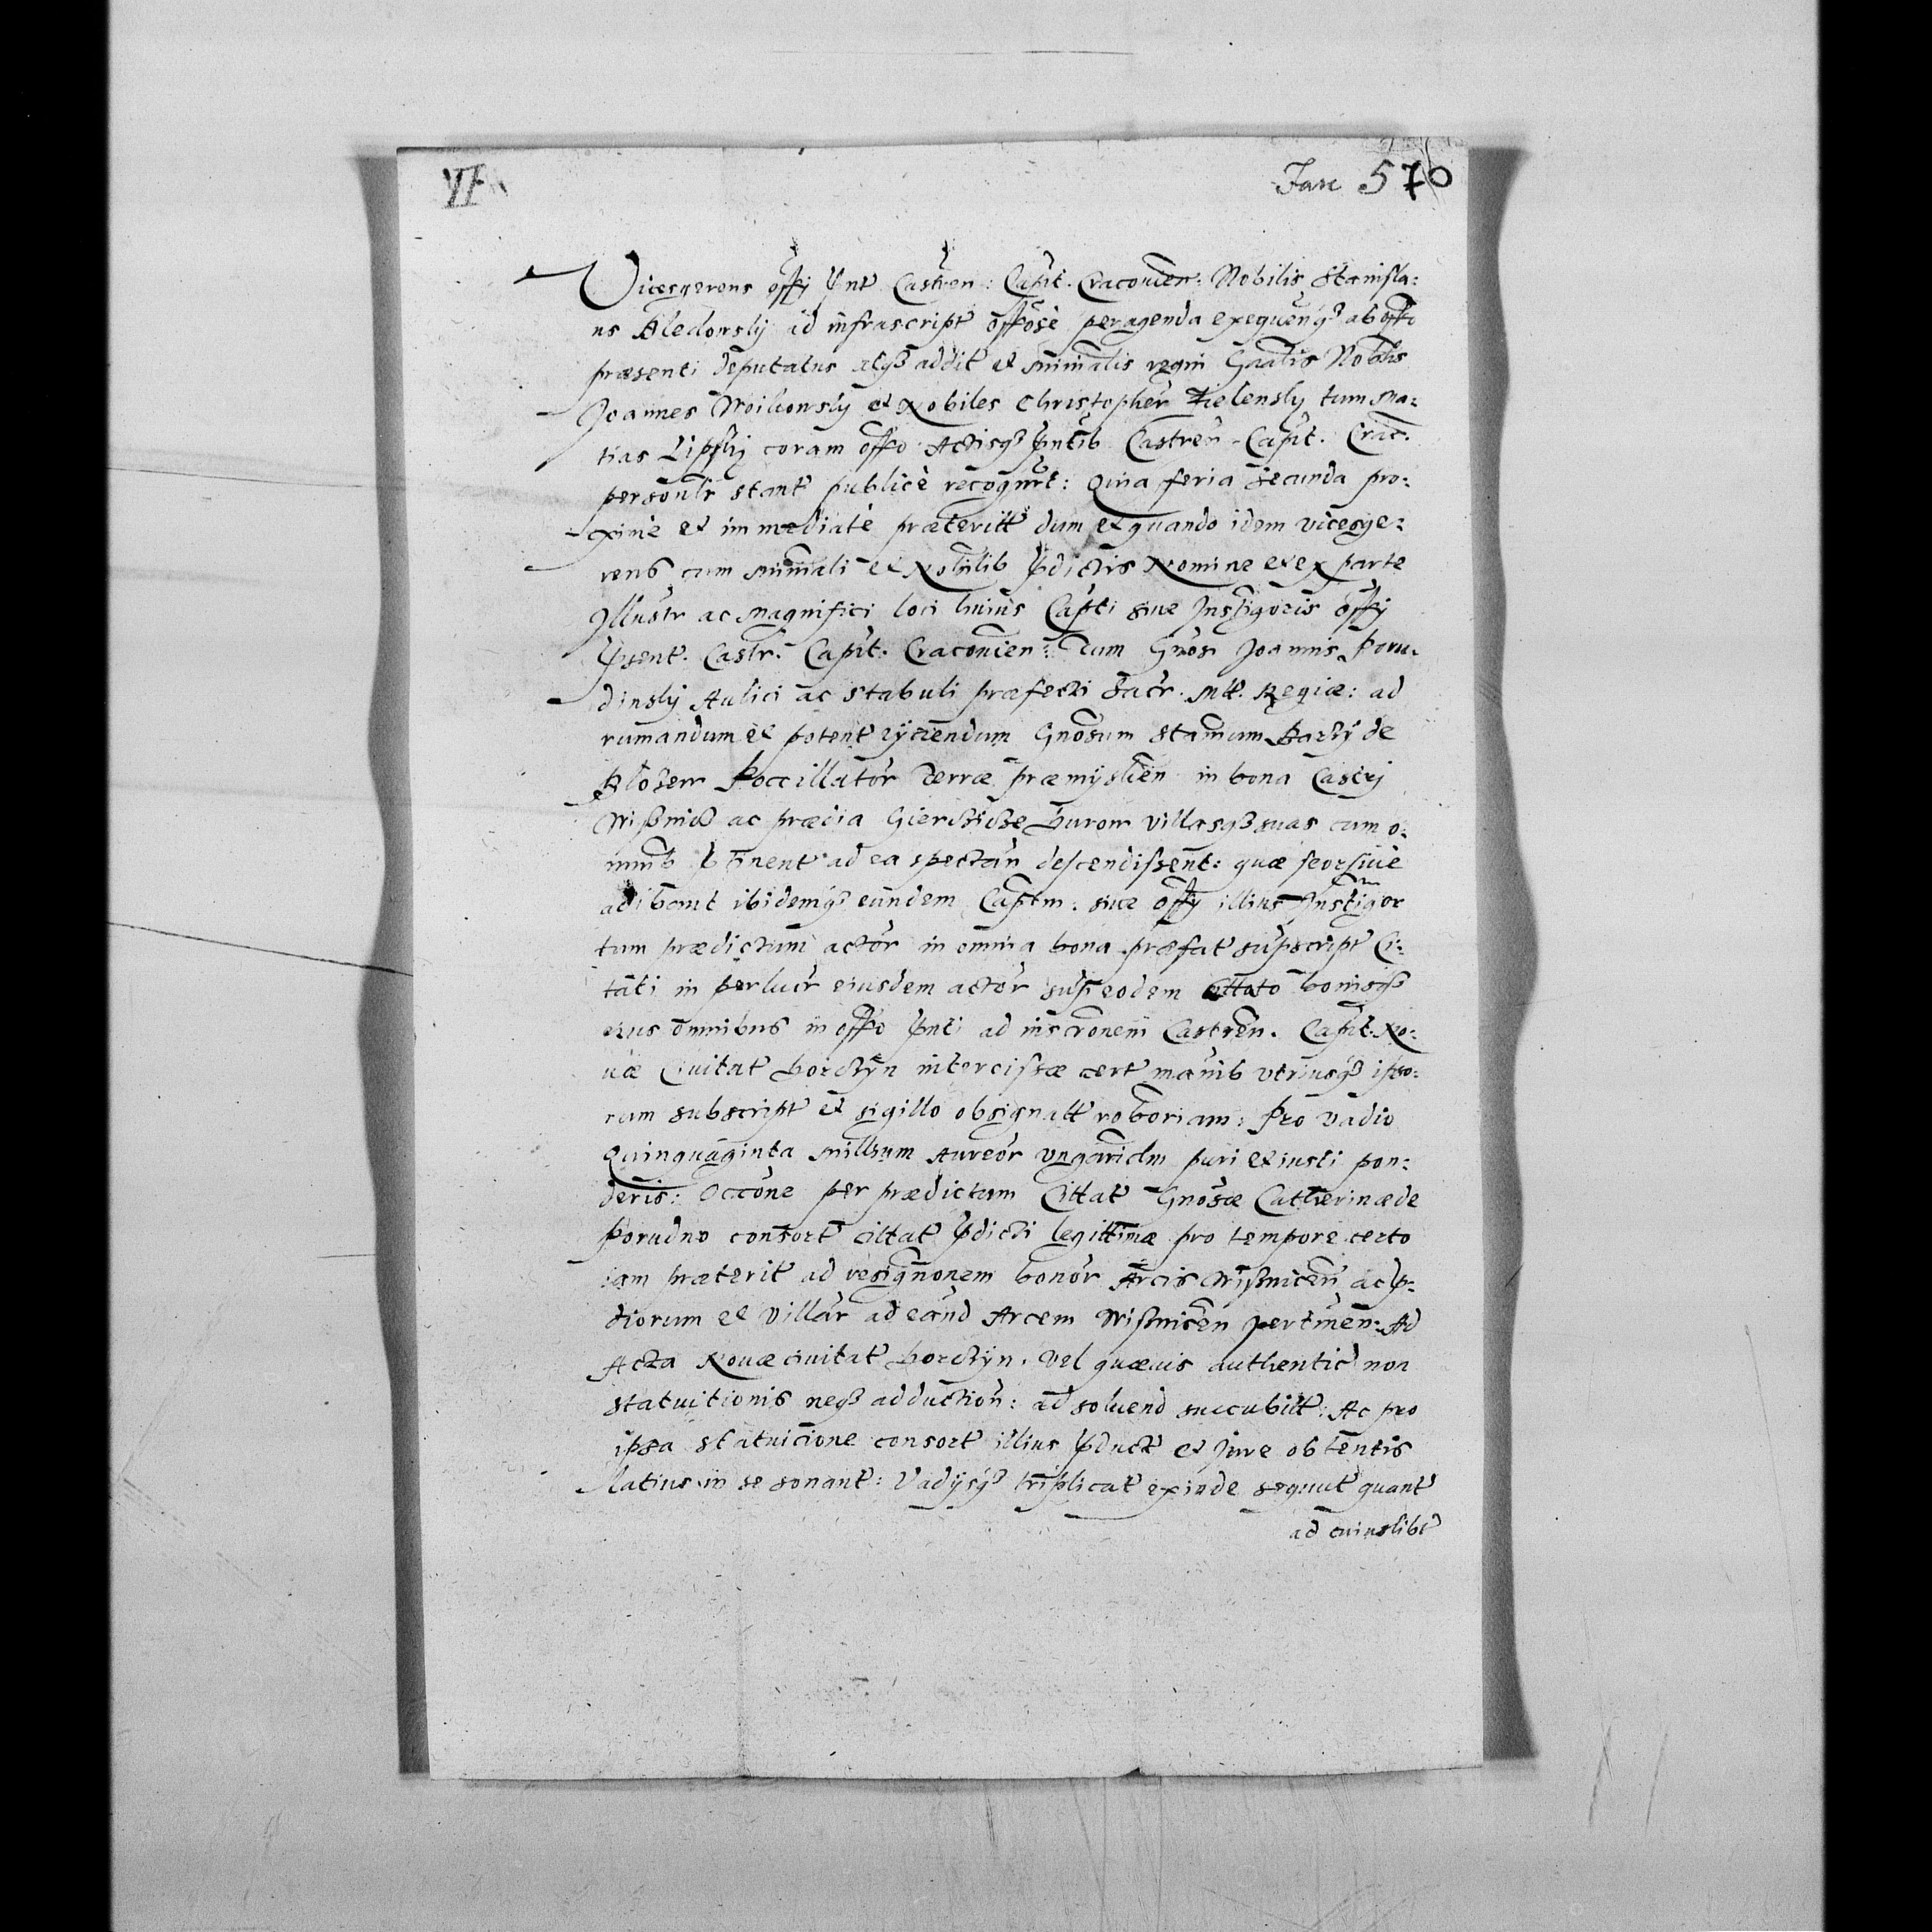 VI
Jan 570
Vicesgerens offi Pnt Castren: Capit. Cracovien: Nobilis Stanisla:
us Bledowsky ad infrascript offose peragenda exequenq ab offo
præsenti deputatus atq addit et Minialis regni Gnalis Nobilis
Joannes Woikowsky et Nobiles Christopher Zielensky tum Ma:
tias Lipsky coram offo Actisq Pntib Castren Capit. Crac.
personlr stant publice recogrt: Quia feria secunda pro:
xime et immediate præteritt dum et quando idem vicesge:
rens cum Miniali et Nobilib Pdictis Nomine et ex parte
Illustr ac Magnifici loci huius Capti sive Instigoris offi
Psent. Castr. Capit. Cracovien: Tum Gnosi Joannis Poru:
dinsky Aulici ac stabuli præfecti Sacr. Mtt. Regiæ: ad
rumandum et potent eyciendum Gnosum Stanum Barzy de
Blozew Poccillator Terræ Præmyslien in bona Castri
Wisnicz ac prædia Gierczicze Burow villasq suas cum o:
mnib Ptinent ad ea spectan descendissent: quæ seorsive
adibant ibidemq eundem Captm. sive offi illius Instigor
tum prædictum actor in omnia bona præfat supscript Ci:
tati in perlucr eiusdem actor sup eodem Cittato bonisq
eius omnibus in offo Pnti ad inscronem Castren. Capit. No:
væ Civitat Korczyn intercissæ cert manib utriusq ipso:
rum subscript et sigillo obsignatt roboriam: Pro vadio
Quinquaginta Millium Aureor Ungaricalm puri et iusti pon:
deris: Occone per prædictum Cittat Gnosæ Catherinæ de
Porudno consort cittat Pdicti legittimæ pro tempore certo
iam præterit ad resignonem bonor Arcis Wisnicen ac P:
diorum et Villar ad eand Arcem Wisnicen pertinen: Ad
Acta Novæ civitat Korczyn. Vel quævis authentic non
statuitionis neq adduction: ad solvend succubitt: Ac pro
ipsa statuicione consort illius Pduct et Jure obtentis
latius in se sonant: Vadysq triplicat exinde sequut quant
ad cuiuslibt